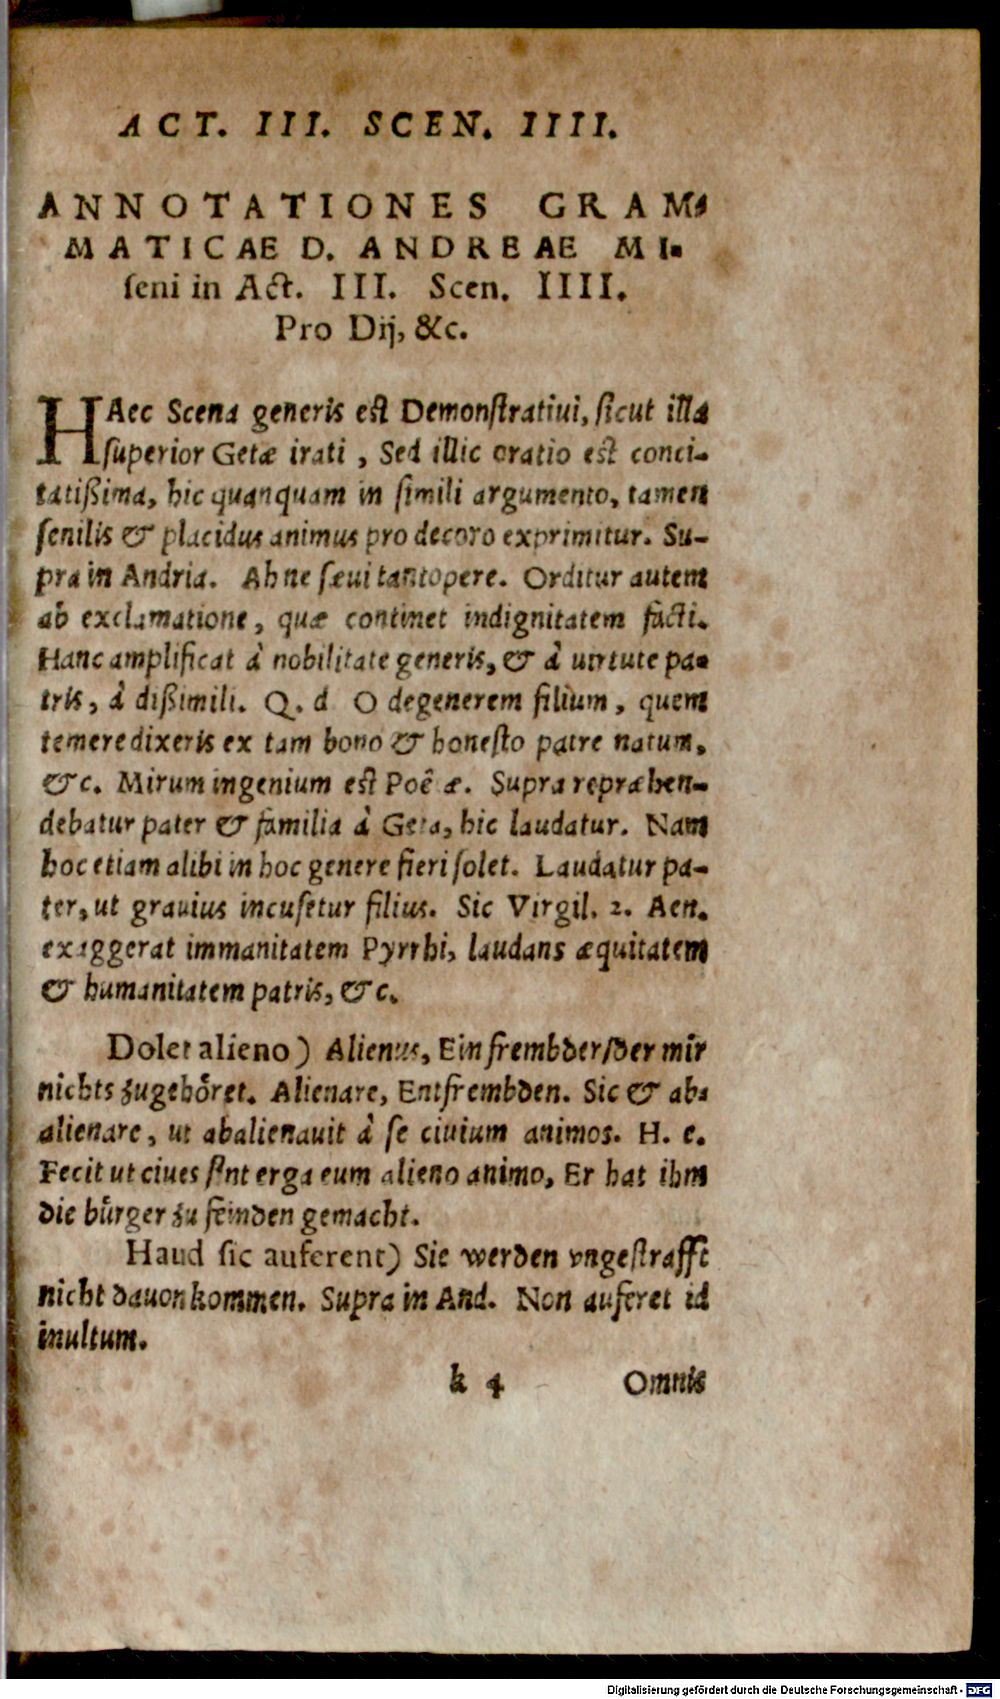 ACT. III. SCEN. IIII.
ANNOTATIONES GRAM-
MATICAE D. ANDREAE MI-
ſeni in Act. III. Scen. IIII.
Pro Dij, &c.
HAec Scena generis eſt Demonſtratiui, ſicut illa
ſuperior Getæ irati, Sed illic oratio eſt conci-
tatißima, hic quanquam in ſimili argumento, tamen
ſenilis & placidus animus pro decoro exprimitur. Su-
pra in Andria. Ah ne ſæui tantopere. Orditur autem
ab exclamatione, quæ continet indignitatem facti.
Hanc amplificat à nobilitate generis, & à uirtute pa-
tris, à dißimili. Q. d O degenerem filium, quem
temere dixeris ex tam bono & honeſto patre natum,
&c. Mirum ingenium eſt Poê æ. Supra repræhen-
debatur pater & familia à Geta, hic laudatur. Nam
hoc etiam alibi in hoc genere fieri ſolet. Laudatur pa-
ter, ut grauius incuſetur filius. Sic Virgil. 2. Aen.
exaggerat immanitatem Pyrrhi, laudans æquitatem
& humanitatem patris, &c.
Dolet alieno) Alienus, Ein frembder/der mir
nichts zugehöret. Alienare, Entfrembden. Sic & ab-
alienare, ut abalienauit à ſe ciuium animos. H. e.
Fecit ut ciues ſint erga eum alieno animo, Er hat ihm
die bürger zu feinden gemacht.
Haud ſic auferent) Sie werden vngeſtrafft
nicht dauon kommen. Supra in And. Non auferet id
inultum.
k 4 Omnis
Digitalisierung gefördert durch die Deutsche Forschungsgemeinschaft - DFG